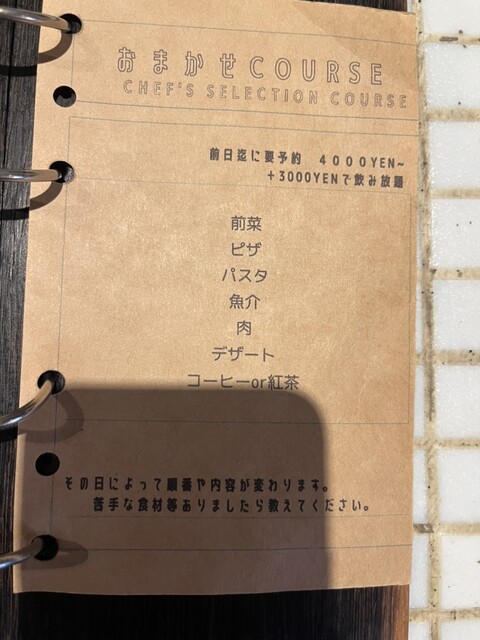 おまかせCOURSE
CHEF'S SELECTION COURSE
前日迄に要予約 4000YEN~
+3000YENで飲み放題
前菜
ピザ
パスタ
魚介
肉
デザート
コーヒーor紅茶
その日によって順番や内容が変わります。
苦手な食材等ありましたら教えてください。